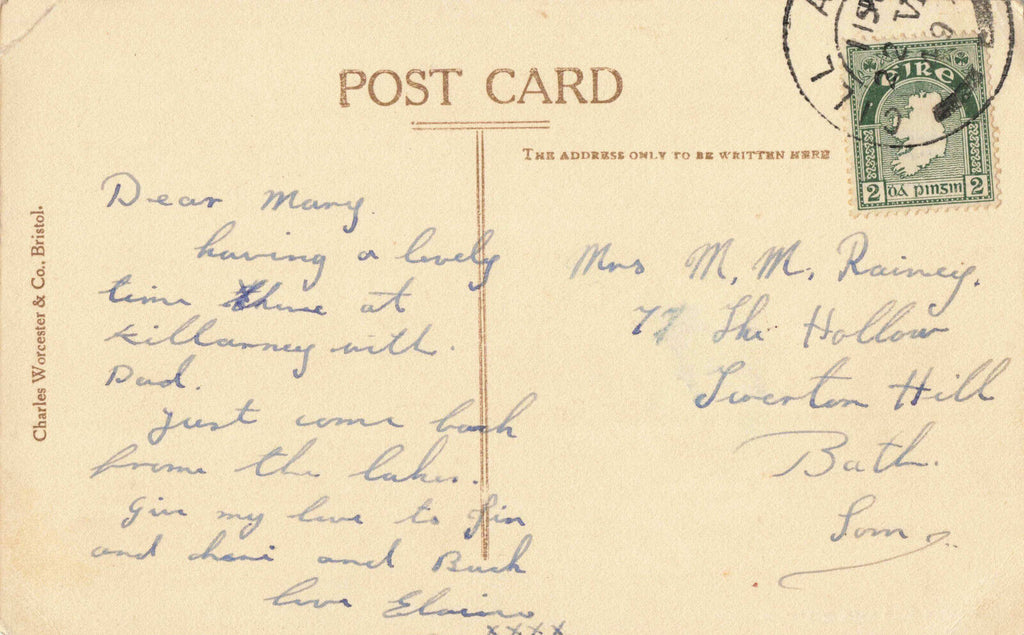 POST CARD
THE ADDRESS ONLY TO BE WRITTEN HERE
Charles Worcester & Co., Bristol.
EIRE
2 dá pinġin 2
Dear Mary
having a lovely
time there at
Killarney with
Dad.
Just come back
frome the lakes.
Give my love to Jin
and and Buck
love Elaine
xxxx
Mrs M. M. Rainey.
77 The Hollow
Twerton Hill
Bath.
Som